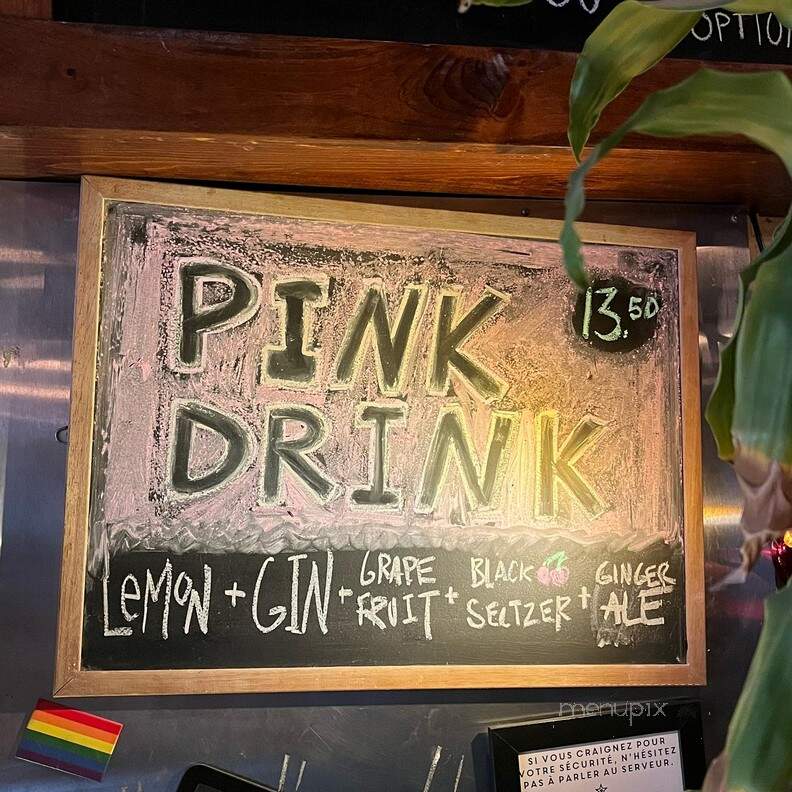 OPTION
PINK
DRINK
13.50
LEMON + GIN + GRAPE FRUIT + BLACK🍒 SELTZER + GINGER ALE
menupix
SI VOUS CRAIGNEZ POUR
VOTRE SÉCURITÉ, N'HÉSITEZ
PAS À PARLER AU SERVEUR.